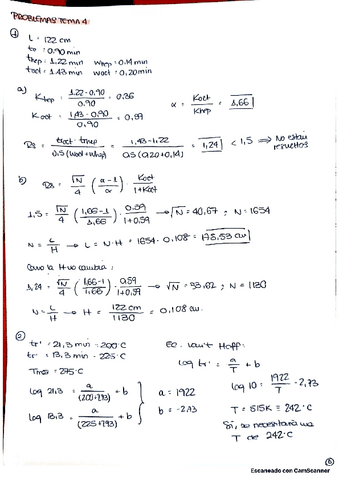 PROBLEMAS TEMA 4
1
L = 122 cm
to = 0.90 min
thep = 1.22 min whep = 0.14 min
toct = 1.43 min woct = 0.20 min
a)
Khep = (1.22 - 0.90) / 0.90 = 0.36
Koct = (1.43 - 0.90) / 0.90 = 0.59
α = Koct / Khep = 1,66
Rs = (toct - thep) / (0.5 (woct + whep)) = (1,43 - 1,22) / (0.5 (0.20 + 0,14)) = 1,24 < 1,5 → No están resueltos
b) Rs = √N / 4 (α - 1 / α) · Koct / (1 + Koct)
1,5 = √N / 4 (1,66 - 1 / 1,66) · 0.59 / (1 + 0,59) → √N = 40,67 ; N = 1654
N = L / H → L = N · H = 1654 · 0.108 = 178.53 cm
Como la H no cambia:
1,24 = √N / 4 (1,66 - 1 / 1,66) · 0,59 / (1 + 0,59) → √N = 33,62 ; N = 1130
N = L / H → H = 122 cm / 1130 = 0,108 cm.
2
tr' = 21,3 min - 200°C
tr' = 13,3 min - 225°C
Tmax = 275°C
Ec. Van't Hoff:
log tr' = a / T + b
log 21,3 = a / (200 + 293) + b
log 13,3 = a / (225 + 293) + b
a = 1922
b = -2,73
log 10 = 1922 / T - 2,73
T = 515K ≡ 242°C
Sí, se necesitaría una
T de 242°C
Escaneado con CamScanner